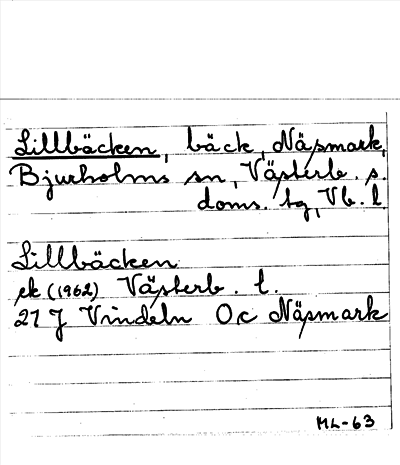 Lillbäcken, bäck, Näsmark,
Bjurholms sn, Västerb. s.
doms. tg, Vb. l.
Lillbäcken
ek (1962) Västerb. l.
21 J Vindeln Oc Näsmark
ML-63